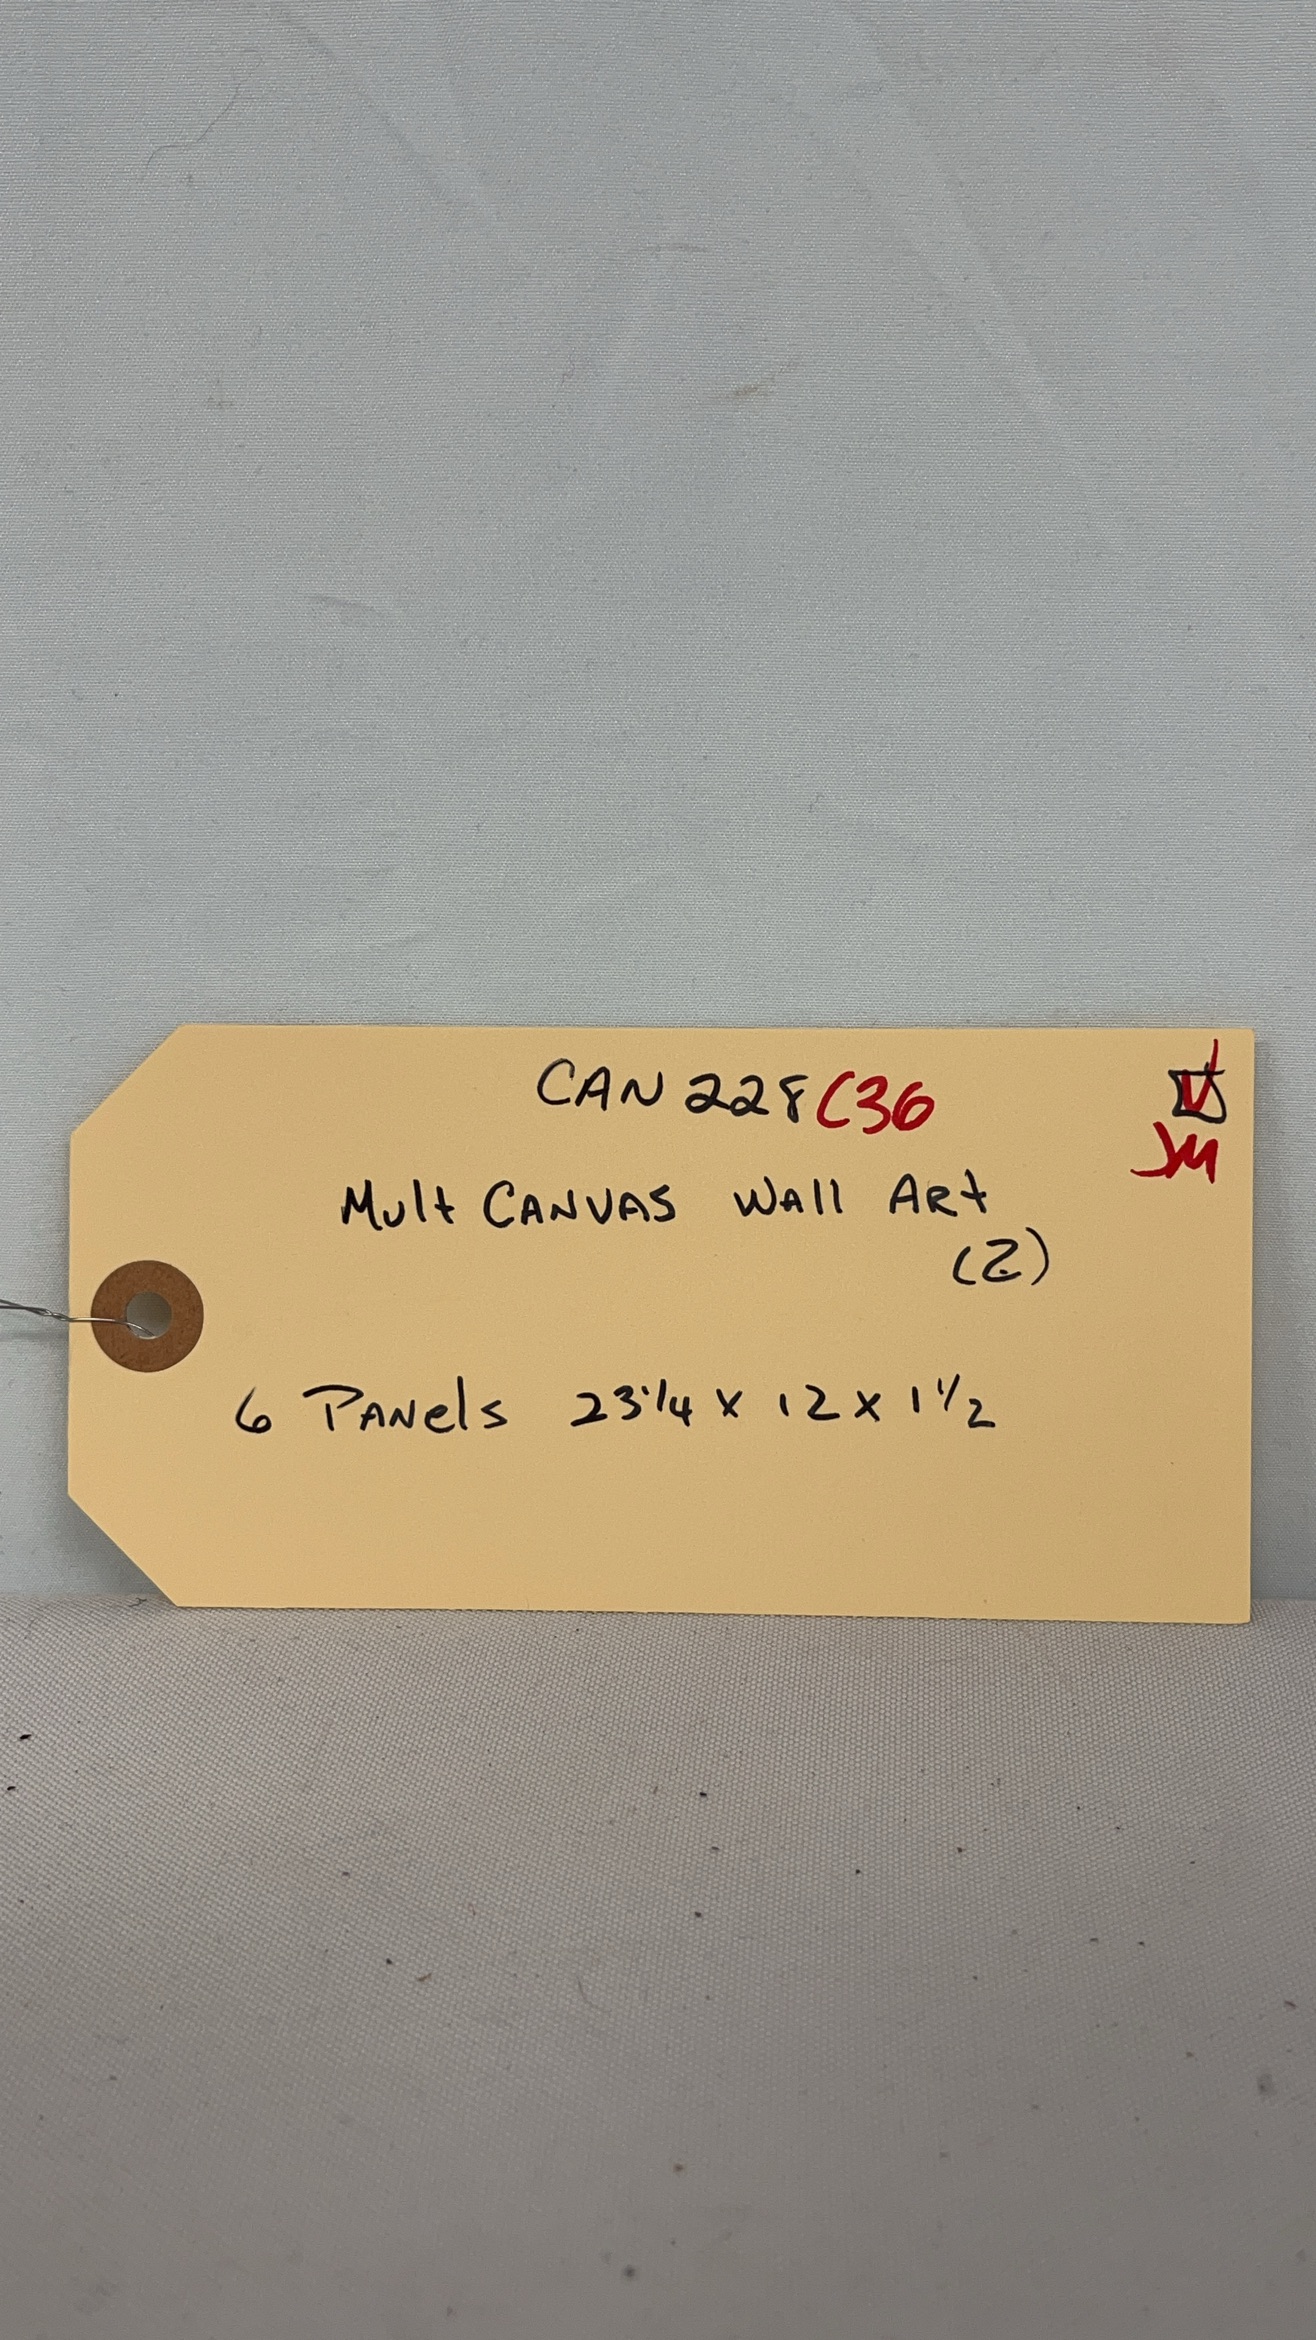 CAN 228 C36
JM
Mult CANVAS WAll ARt
(2)
6 PANels 23 1/4 x 12 x 1 1/2